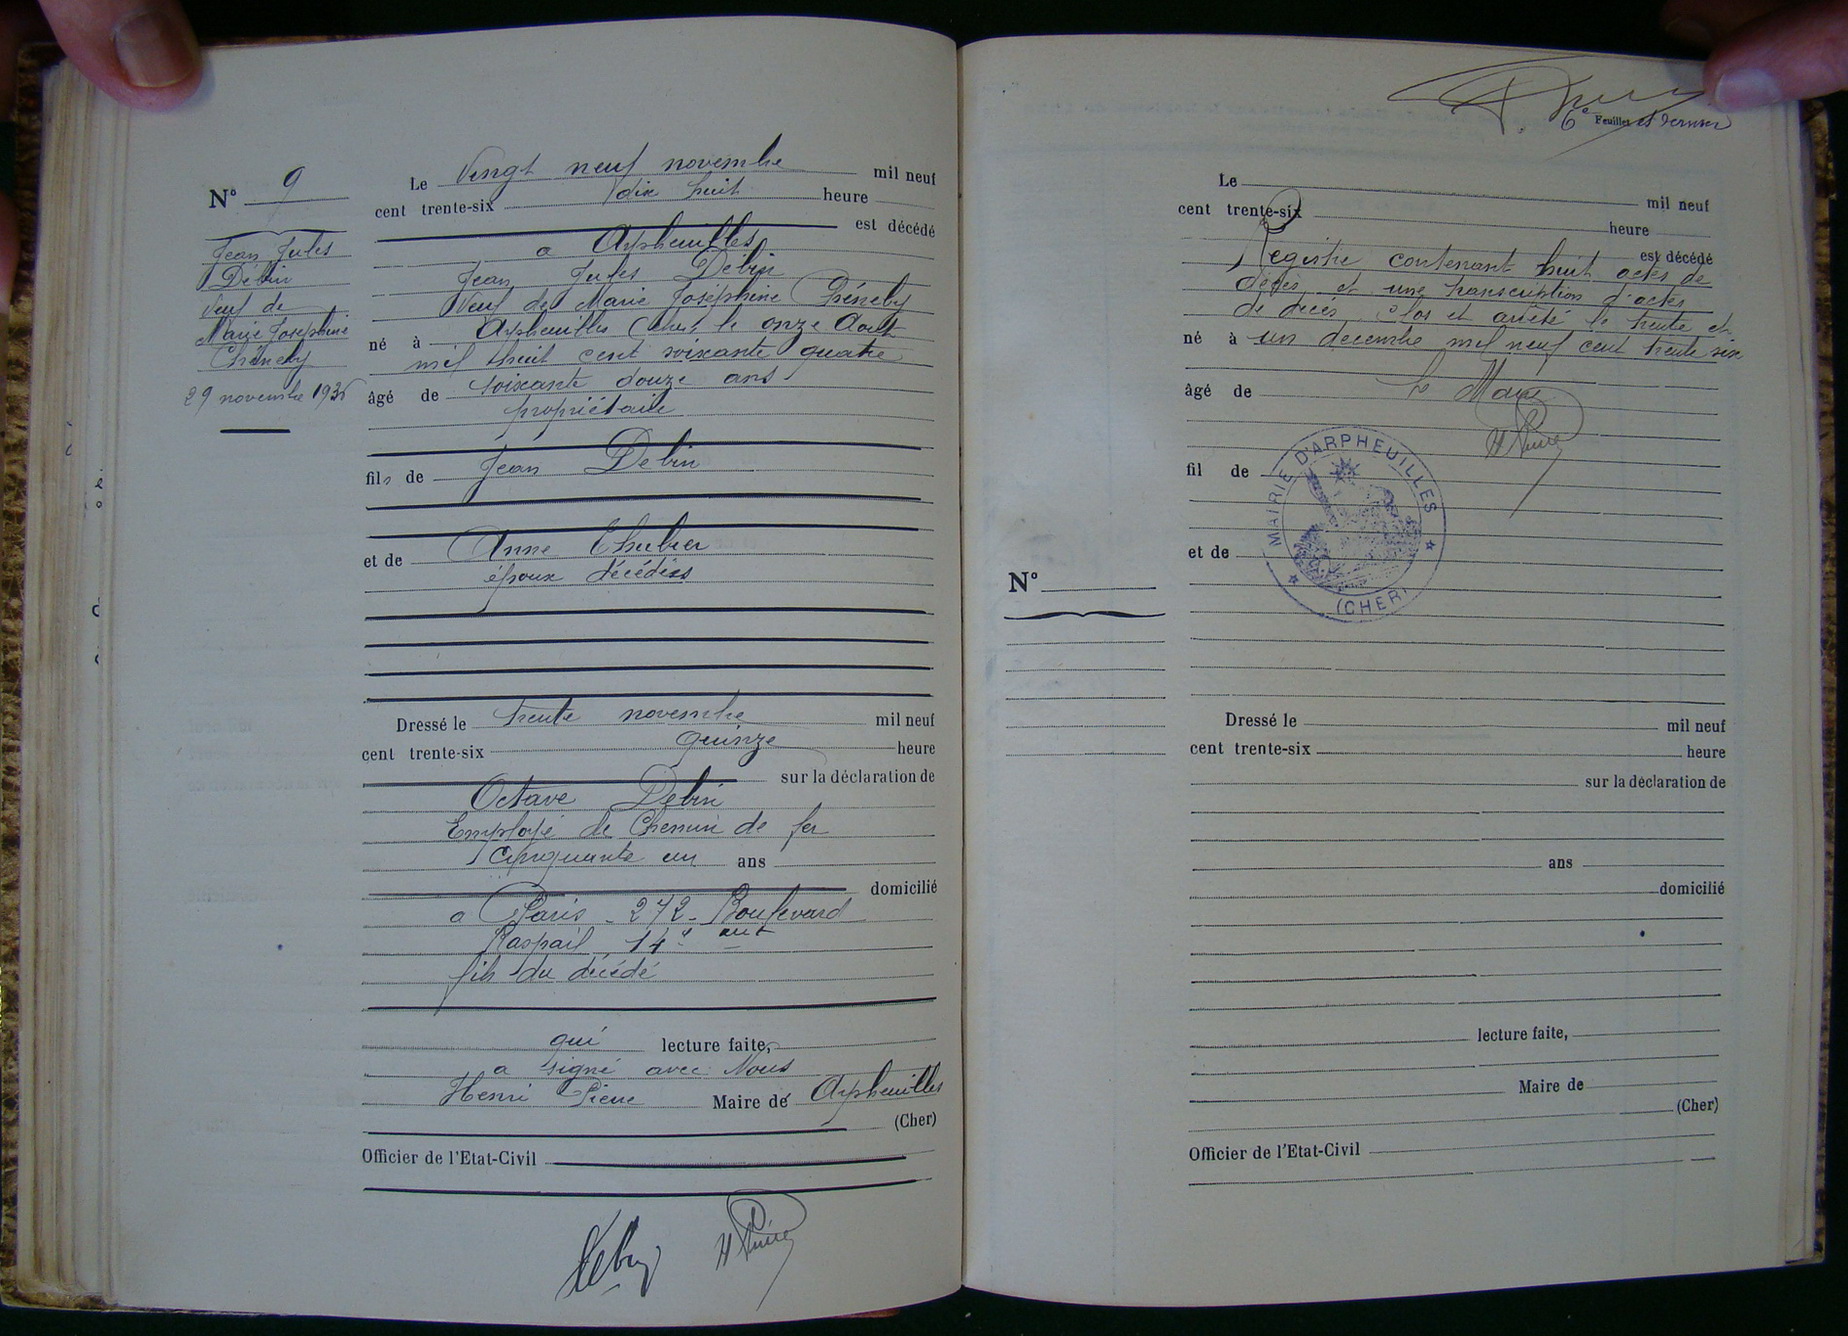 N° 9
Jean Jules
Debin
veuf de
Marie Joséphine
Chénely
29 novembre 1936
Le Vingt neuf novembre mil neuf
cent trente-six dix huit heure
est décédé
a Arpheuilles
Jean Jules Debin
Veuf de Marie Joséphine
né à Arpheuilles Cher le onze Août
mil huit cent soixante quatre
âgé de soixante douze ans
propriétaire
fils de Jean Debin
et de Anne
époux décédés
Dressé le trente novembre mil neuf
cent trente-six quinze heure
sur la déclaration de
Octave Debin
Employé de Chemin de fer
cinquante un ans
domicilié
a Paris - 272 - Boulevard
Raspail 14e art
fils du décédé
qui lecture faite,
a signé avec Nous
Henri Pierre Maire de Arpheuilles
(Cher)
Officier de l'Etat-Civil
Debin
H Pierre
6e Feuillet et dernier
Le mil neuf
cent trente-six heure
est décédé
Registre contenant huit actes de
décès et une transcription d'actes
de décès, Clos et arrêté le trente et
né à un decembre mil neuf cent trente six
âgé de Le Maire
H Pierre
fil de
MAIRIE D'ARPHEUILLES
(CHER)
et de
N°
Dressé le mil neuf
cent trente-six heure
sur la déclaration de
ans
domicilié
lecture faite,
Maire de
(Cher)
Officier de l'Etat-Civil